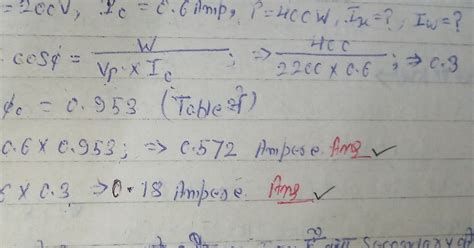 =200V, Ic = 0.6 Amp, P=400W, Iμ=?, Iw=?
cosϕ = W / Vp. × Ic ; ⇒ 400 / 2200 × 0.6 ; ⇒ 0.3
ϕc = 0.953 (Table से)
0.6 × 0.953; ⇒ 0.572 Ampere Ans ✓
× 0.3 ⇒ 0.18 Ampere. Ans ✓